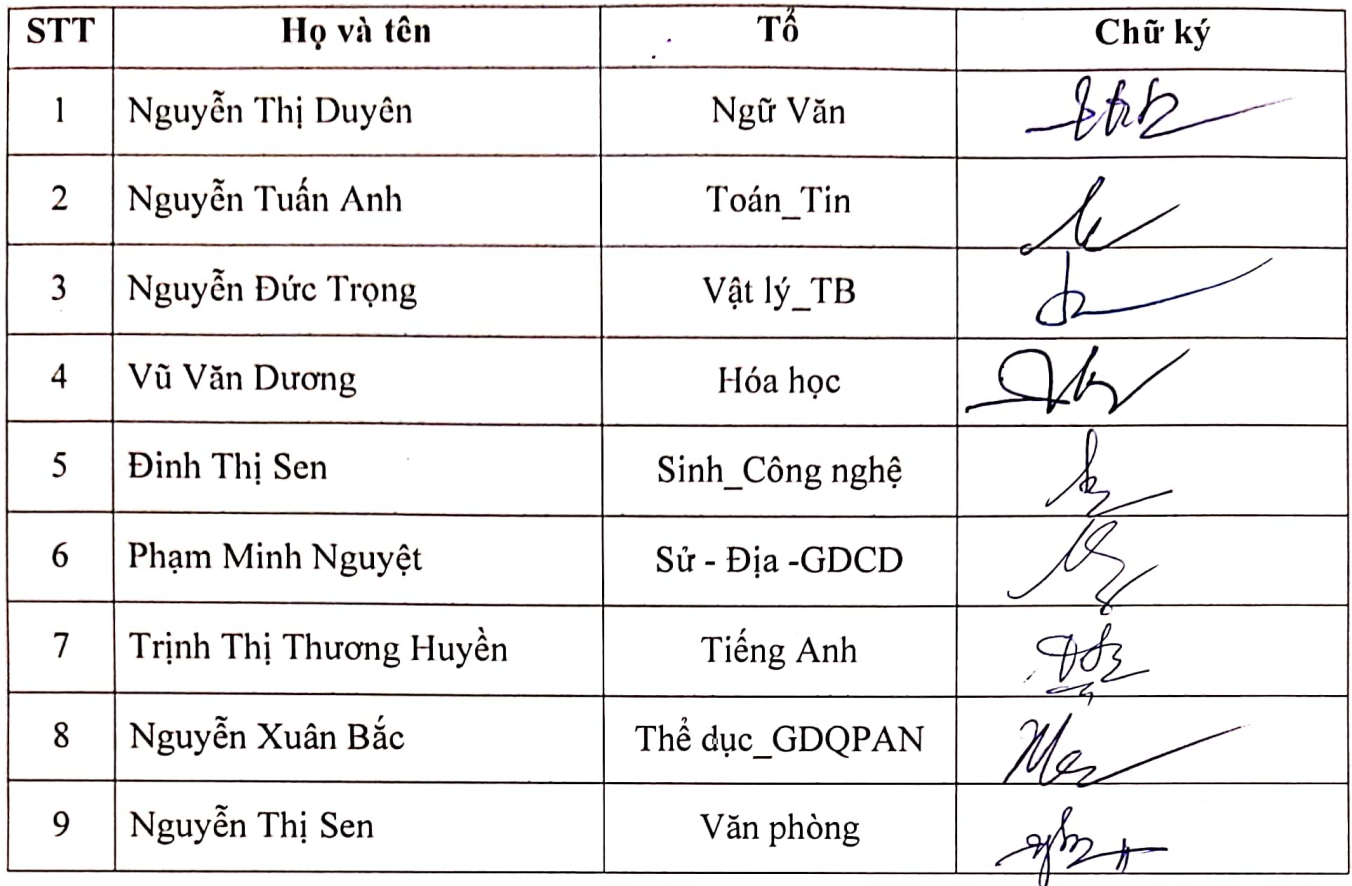 STT Họ và tên Tổ Chữ ký
1 Nguyễn Thị Duyên Ngữ Văn
2 Nguyễn Tuấn Anh Toán_Tin
3 Nguyễn Đức Trọng Vật lý_TB
4 Vũ Văn Dương Hóa học
5 Đinh Thị Sen Sinh_Công nghệ
6 Phạm Minh Nguyệt Sử - Địa -GDCD
7 Trịnh Thị Thương Huyền Tiếng Anh
8 Nguyễn Xuân Bắc Thể dục_GDQPAN
9 Nguyễn Thị Sen Văn phòng